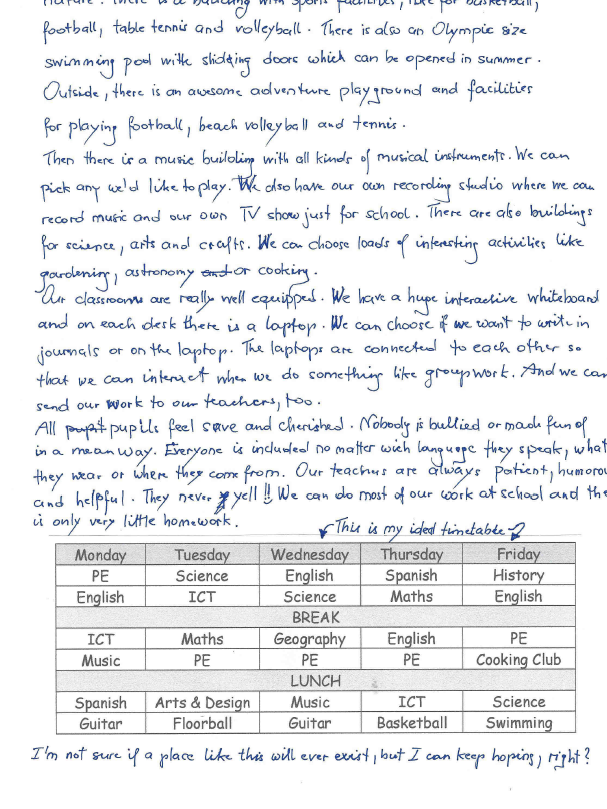 nature. There is a building with sports facilities, like for basketball,
football, table tennis and volleyball. There is also an Olympic size
swimming pool with sliding doors which can be opened in summer.
Outside, there is an awesome adventure playground and facilities
for playing football, beach volleyball and tennis.
Then there is a music building with all kinds of musical instruments. We can
pick any we'd like to play. We also have our own recording studio where we can
record music and our own TV show just for school. There are also buildings
for science, arts and crafts. We can choose loads of interesting activities like
gardening, astronomy and or cooking.
Our classrooms are really well equipped. We have a huge interactive whiteboard
and on each desk there is a laptop. We can choose if we want to write in
journals or on the laptop. The laptops are connected to each other so
that we can interact when we do something like groupwork. And we can
send our work to our teachers, too.
All pupit pupils feel save and cherished. Nobody is bullied or made fun of
in a mean way. Everyone is included no matter wich language they speak, what
they wear or where they come from. Our teachers are always patient, humorou
and helpful. They never yell!! We can do most of our work at school and the
is only very little homework.
This is my ideal timetable
Monday Tuesday Wednesday Thursday Friday
PE Science English Spanish History
English ICT Science Maths English
BREAK
ICT Maths Geography English PE
Music PE PE PE Cooking Club
LUNCH
Spanish Arts & Design Music ICT Science
Guitar Floorball Guitar Basketball Swimming
I'm not sure if a place like this will ever exist, but I can keep hoping, right?